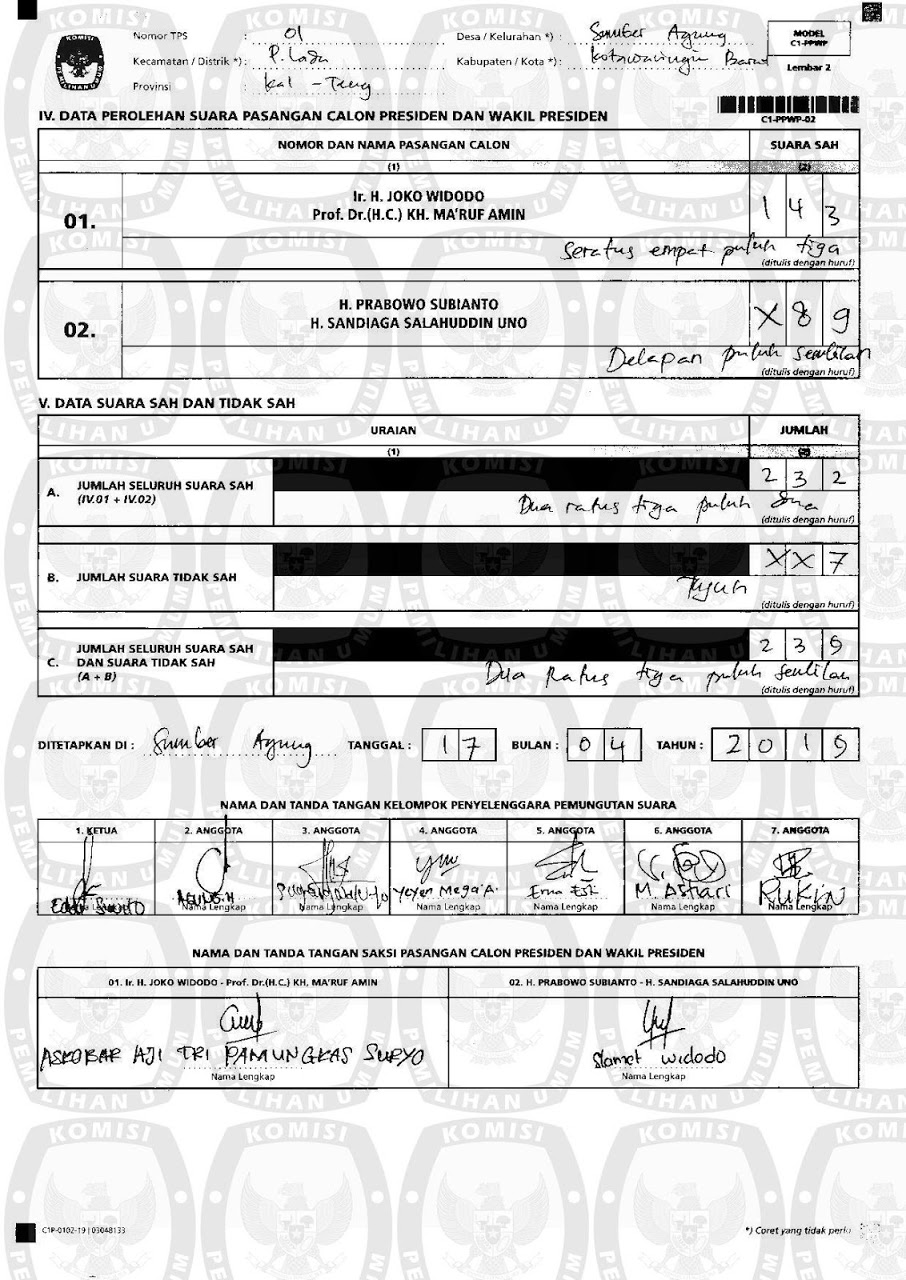 Nomor TPS : 01
Desa / Kelurahan *) : Sumber Agung
MODEL
C1-PPWP
Kecamatan / Distrik *) : P. Lada
Kabupaten / Kota *) : Kotawaringin Barat
Lembar 2
Provinsi : Kal - Teng
IV. DATA PEROLEHAN SUARA PASANGAN CALON PRESIDEN DAN WAKIL PRESIDEN
C1-PPWP-02
NOMOR DAN NAMA PASANGAN CALON SUARA SAH
(1) (2)
01. Ir. H. JOKO WIDODO
Prof. Dr.(H.C.) KH. MA'RUF AMIN
1 4 3
Seratus empat puluh tiga
(ditulis dengan huruf)
02. H. PRABOWO SUBIANTO
H. SANDIAGA SALAHUDDIN UNO
X 8 9
Delapan puluh sembilan
(ditulis dengan huruf)
V. DATA SUARA SAH DAN TIDAK SAH
URAIAN JUMLAH
(1) (2)
A. JUMLAH SELURUH SUARA SAH
(IV.01 + IV.02)
2 3 2
Dua ratus tiga puluh dua
(ditulis dengan huruf)
B. JUMLAH SUARA TIDAK SAH
X X 7
Tujuh
(ditulis dengan huruf)
C. JUMLAH SELURUH SUARA SAH
DAN SUARA TIDAK SAH
(A + B)
2 3 9
Dua Ratus tiga puluh sembilan
(ditulis dengan huruf)
DITETAPKAN DI : Sumber Agung TANGGAL : 1 7 BULAN : 0 4 TAHUN : 2 0 1 9
NAMA DAN TANDA TANGAN KELOMPOK PENYELENGGARA PEMUNGUTAN SUARA
1. KETUA 2. ANGGOTA 3. ANGGOTA 4. ANGGOTA 5. ANGGOTA 6. ANGGOTA 7. ANGGOTA
AGUNG.H Yeyen Mega'A. Erna Esti M. Ashari RUKIN
Nama Lengkap Nama Lengkap Nama Lengkap Nama Lengkap Nama Lengkap Nama Lengkap Nama Lengkap
NAMA DAN TANDA TANGAN SAKSI PASANGAN CALON PRESIDEN DAN WAKIL PRESIDEN
01. Ir. H. JOKO WIDODO - Prof. Dr.(H.C.) KH. MA'RUF AMIN
02. H. PRABOWO SUBIANTO - H. SANDIAGA SALAHUDDIN UNO
ASKOBAR AJI TRI PAMUNGKAS SURYO
Slamet widodo
Nama Lengkap Nama Lengkap
C1P-0102-19 | 03048133
*) Coret yang tidak perlu